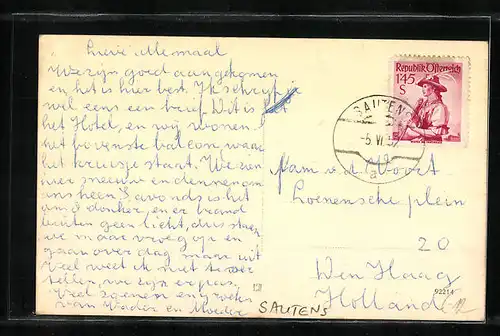 Lieve Allemaal
We zijn goed aangekomen
en het is hier best. Ik schrijf je
wel eens een brief. Dit is het
het Hotel, en wij wonen
het bovenste balcon waar
het kruisje staat. We zien
hier sneeuw en dennen om
ons heen. 's avonds is het
donker, en er brand
buiten geen licht, dus
we maar vroeg op en
gaan over dag maar uit
Veel weet ik niet te ver
tellen, we zijn er pas.
Veel zoenen
van Vader en Moeder
Republik Österreich
1'45
S
SAUTENS
5. VI. 57
a
Fam v. d. Woort
Loenensche plein
20
Den Haag
Holland
92214
SAUTENS